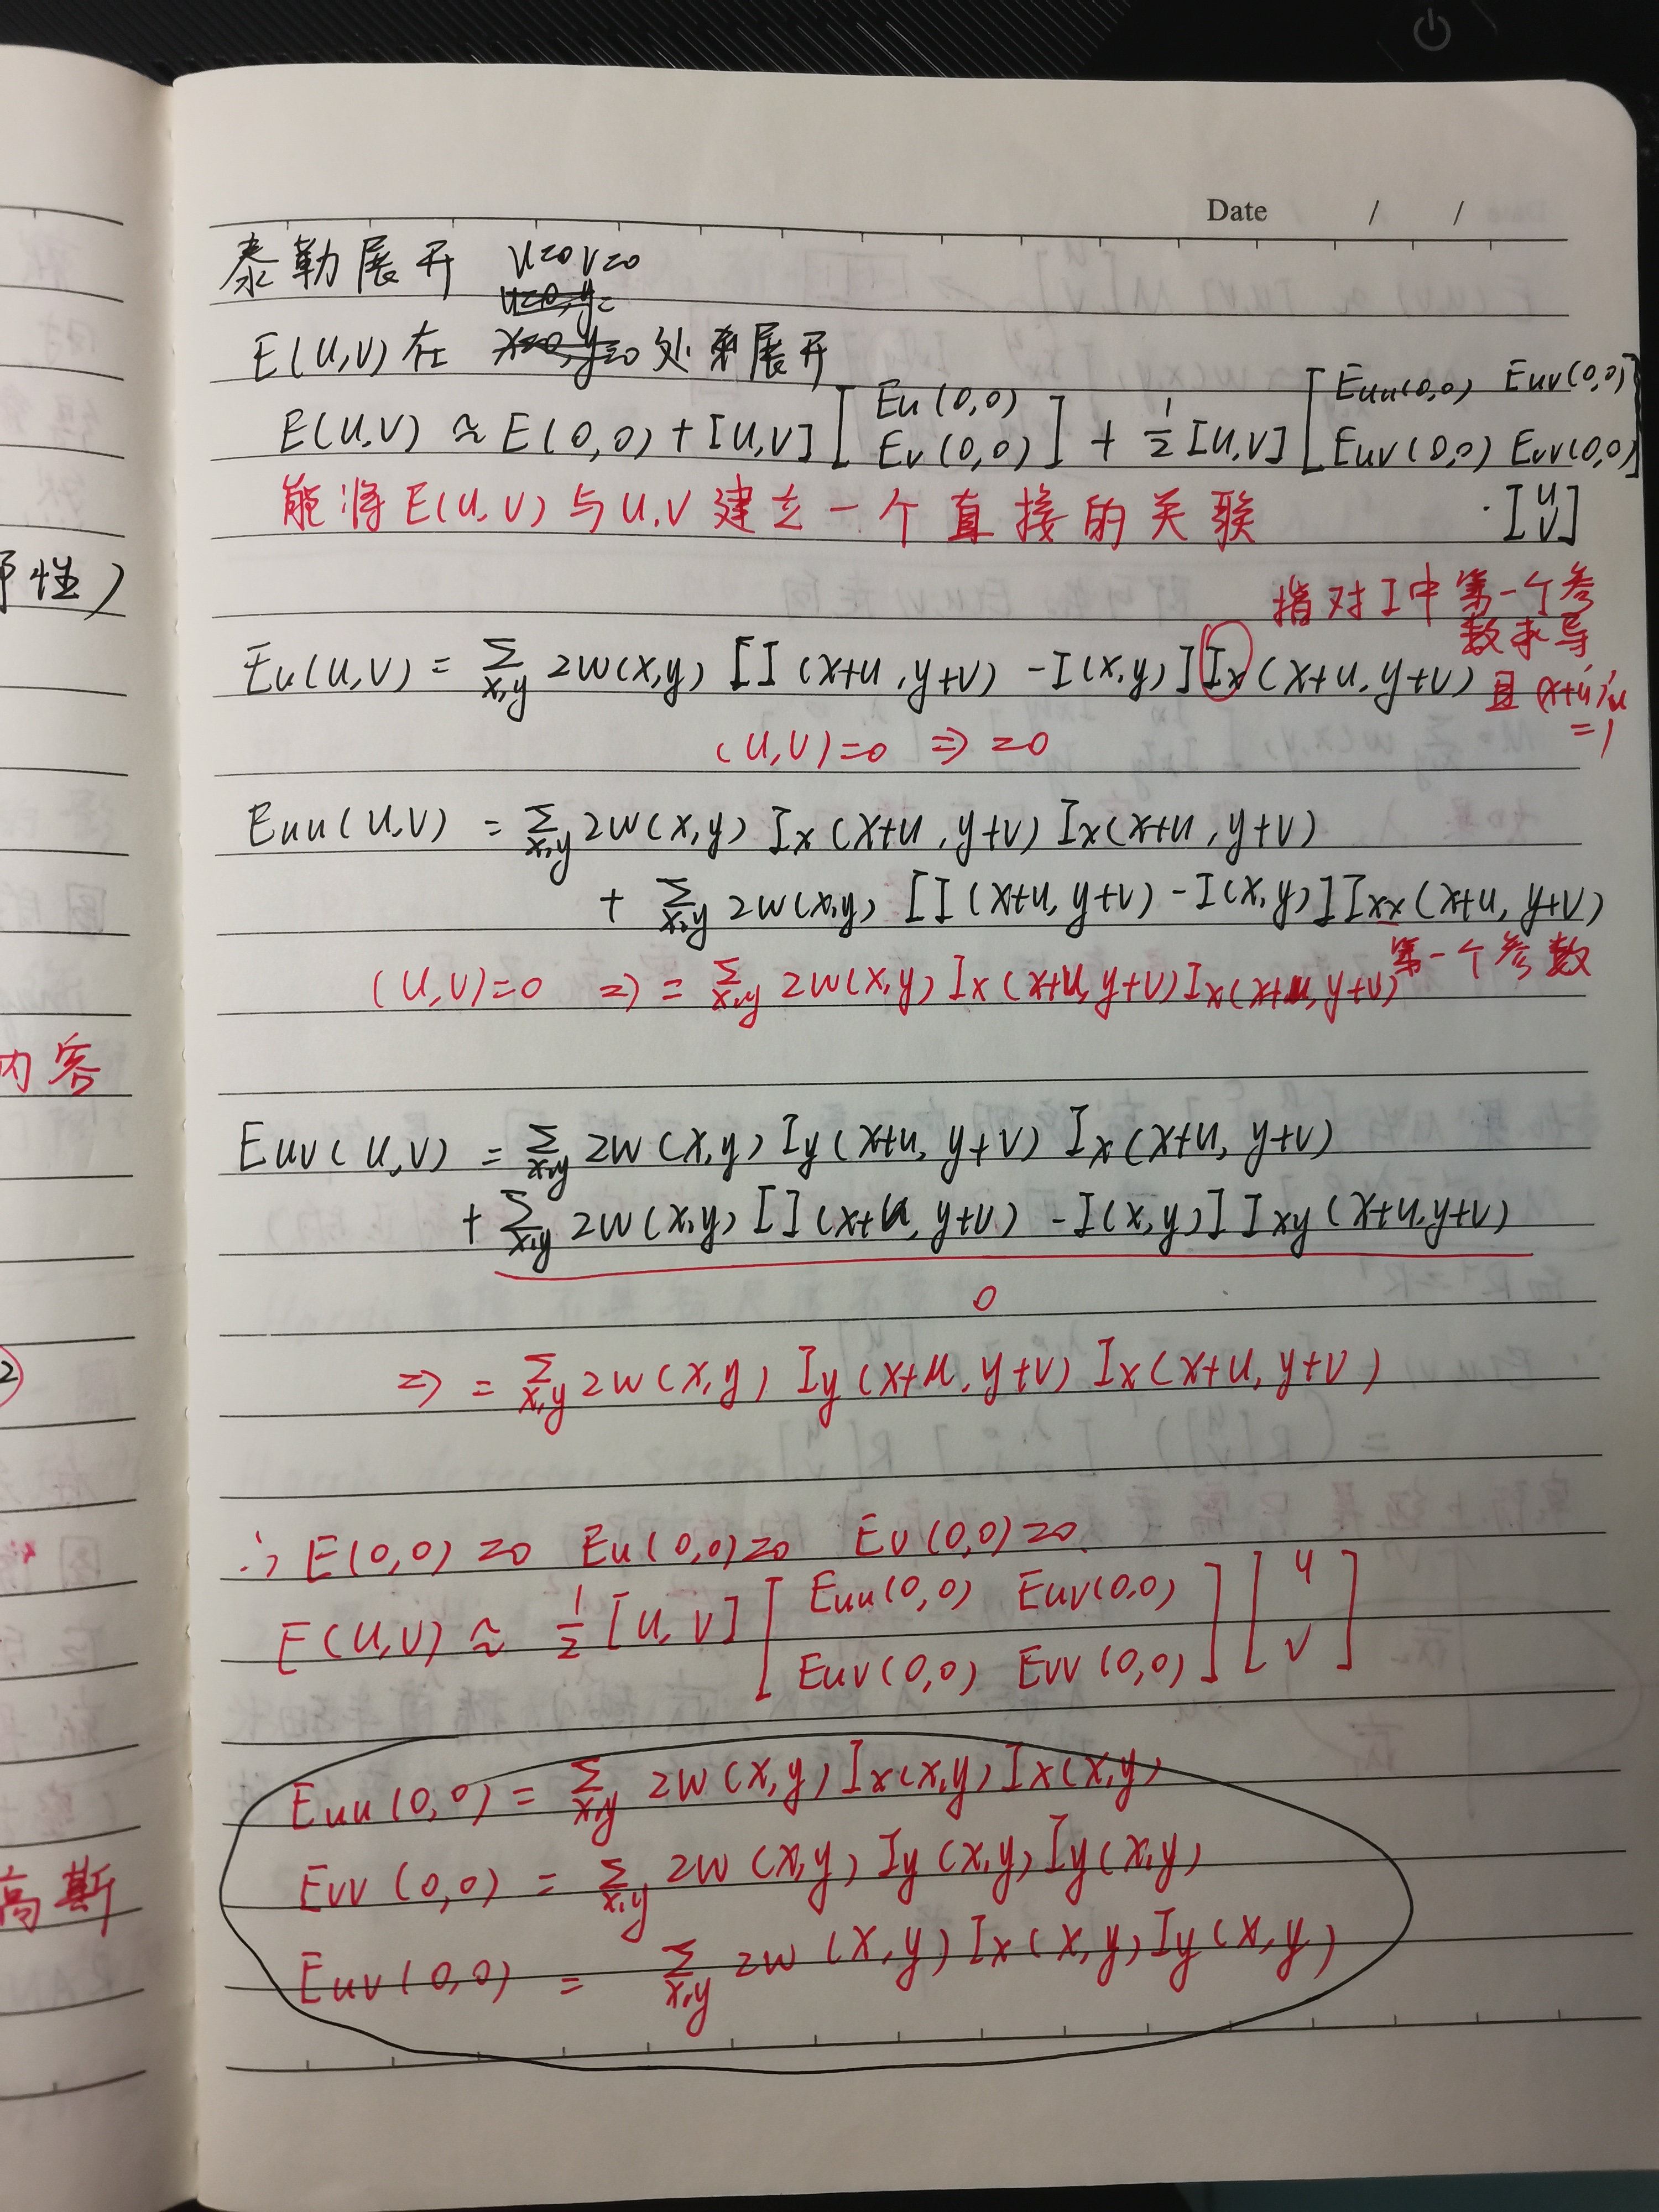 Date / /
泰勒展开 u=0 v=0
E(u,v)在 处展开
E(u,v) ≈ E(0,0) + [u,v] [Eu(0,0) Ev(0,0)] + 1/2 [u,v] [Euu(0,0) Euv(0,0) Euv(0,0) Evv(0,0)]
· [u v]
能将E(u,v)与u,v建立一个直接的关联
指对I中第一个参数求导
且(x+u)'u =1
Eu(u,v) = Σx,y 2w(x,y) [I(x+u,y+v) - I(x,y)] Ix(x+u,y+v)
(u,v)=0 => =0
Euu(u,v) = Σx,y 2w(x,y) Ix(x+u,y+v) Ix(x+u,y+v)
+ Σx,y 2w(x,y) [I(x+u,y+v) - I(x,y)] Ixx(x+u,y+v)
第一个参数
(u,v)=0 => = Σx,y 2w(x,y) Ix(x+u,y+v) Ix(x+u,y+v)
Euv(u,v) = Σx,y 2w(x,y) Iy(x+u,y+v) Ix(x+u,y+v)
+ Σx,y 2w(x,y) [I(x+u,y+v) - I(x,y)] Ixy(x+u,y+v)
0
=> = Σx,y 2w(x,y) Iy(x+u,y+v) Ix(x+u,y+v)
∴ E(0,0)=0 Eu(0,0)=0 Ev(0,0)=0
E(u,v) ≈ 1/2 [u,v] [Euu(0,0) Euv(0,0) Euv(0,0) Evv(0,0)] [u v]
Euu(0,0) = Σx,y 2w(x,y) Ix(x,y) Ix(x,y)
Evv(0,0) = Σx,y 2w(x,y) Iy(x,y) Iy(x,y)
Euv(0,0) = Σx,y 2w(x,y) Ix(x,y) Iy(x,y)
性)
内容
2
高斯